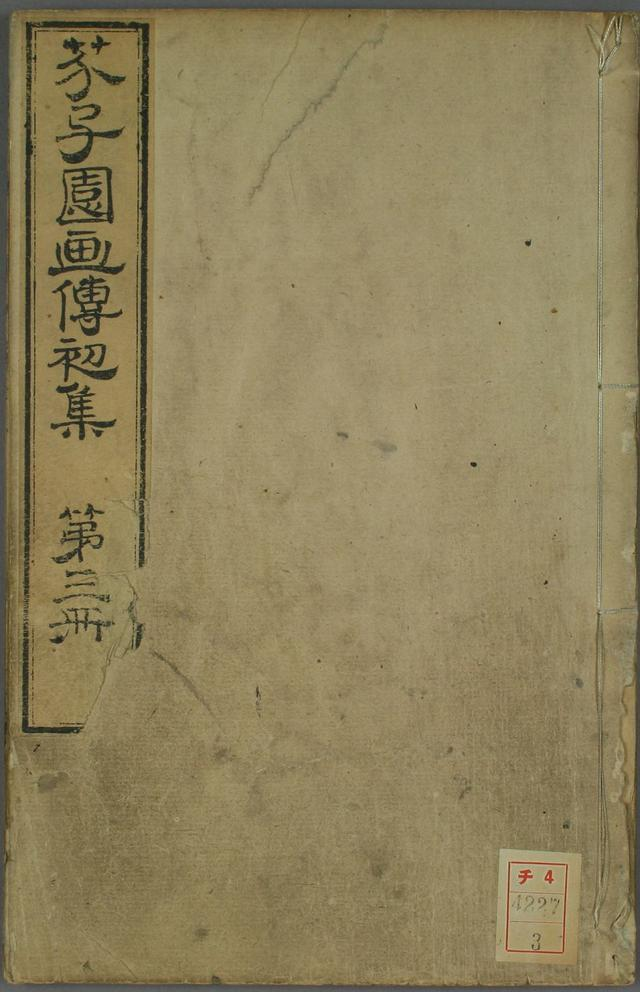 芥子園画傳初集 第三冊
チ 4
4227
3